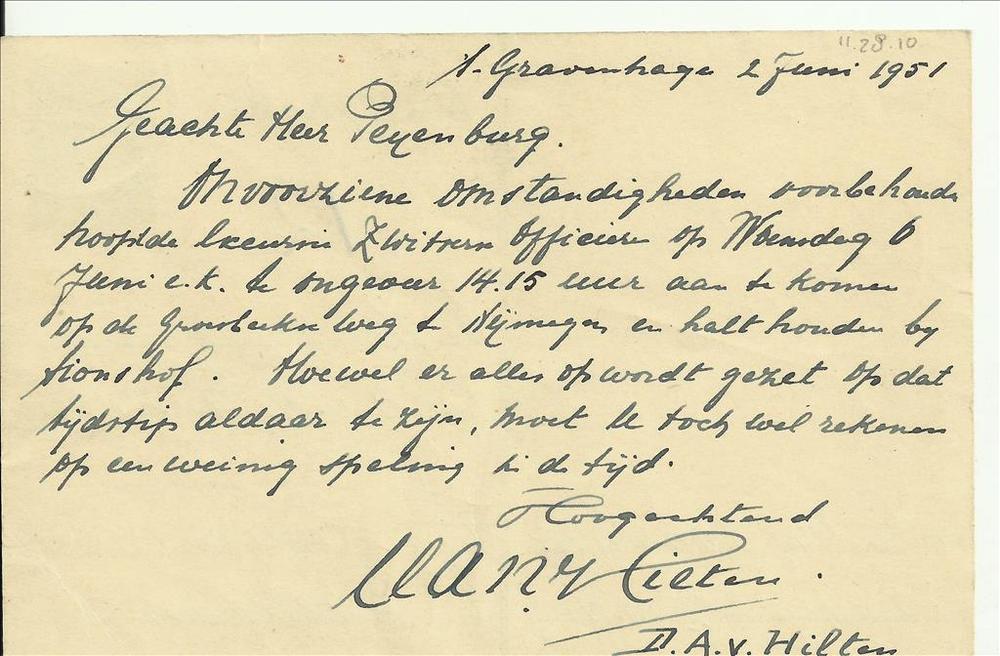 11.28.10
's-Gravenhage 2 Juni 1951
Geachte Heer Peijenburg.
Onvoorziene omstandigheden voorbehoude
hoopt de excursie Zwitsers Officieren op Woensdag 6
Juni e.k. te ongeveer 14.15 uur aan te komen
op de Groesbeekse weg te Nijmegen en halt houden by
Sionshof. Hoewel er alles op wordt gezet op dat
tijdstip aldaar te zijn, moet U toch wel rekenen
op een weinig speling in de tijd.
Hoogachtend
D.A.v.Hilten